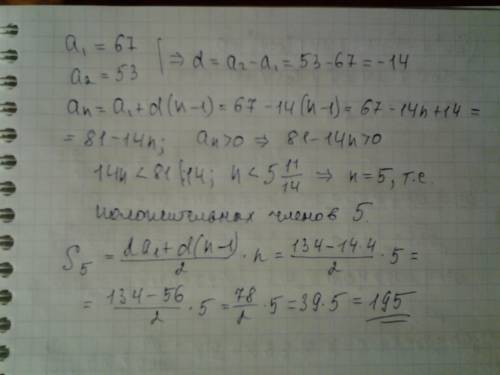 a₁ = 67
a₂ = 53 | ⇒ d = a₂ - a₁ = 53 - 67 = -14
aₙ = a₁ + d(n-1) = 67 - 14(n-1) = 67 - 14n + 14 =
= 81 - 14n; aₙ > 0 ⇒ 81 - 14n > 0
14n < 81 |:14; n < 5 11/14 ⇒ n = 5, т.е.
положительных членов 5.
S₅ = (2a₁ + d(n-1))/2 · n = (134 - 14·4)/2 · 5 =
= (134 - 56)/2 · 5 = 78/2 · 5 = 39·5 = 195